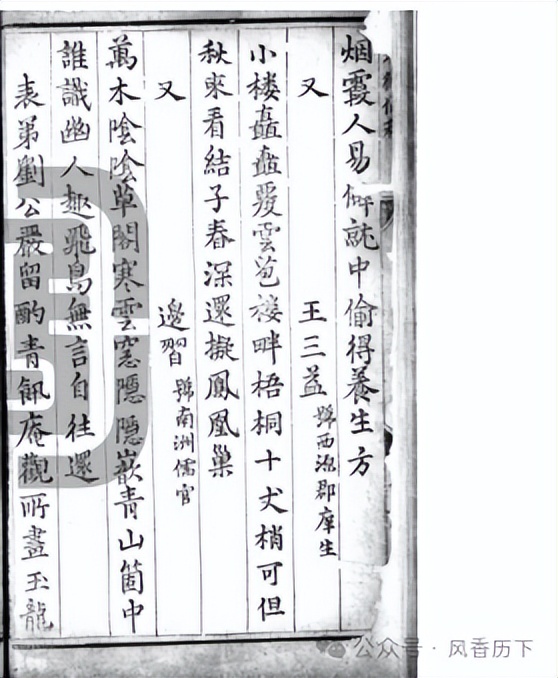 烟霞人易僻就中偷得養生方
又 王三益 號西源郡庠生
小楼矗矗覆雲苞楼畔梧桐十丈梢可但
秋來看結子春深還擬鳳凰巢
又 邊習 號南洲儒官
萬木陰陰草閣寒雲窓隱隱嵌青山箇中
誰識幽人趣飛鳥無言自往還
表弟劉公嚴留酌青甀庵觀所畫玉龍
公众号 · 风香历下